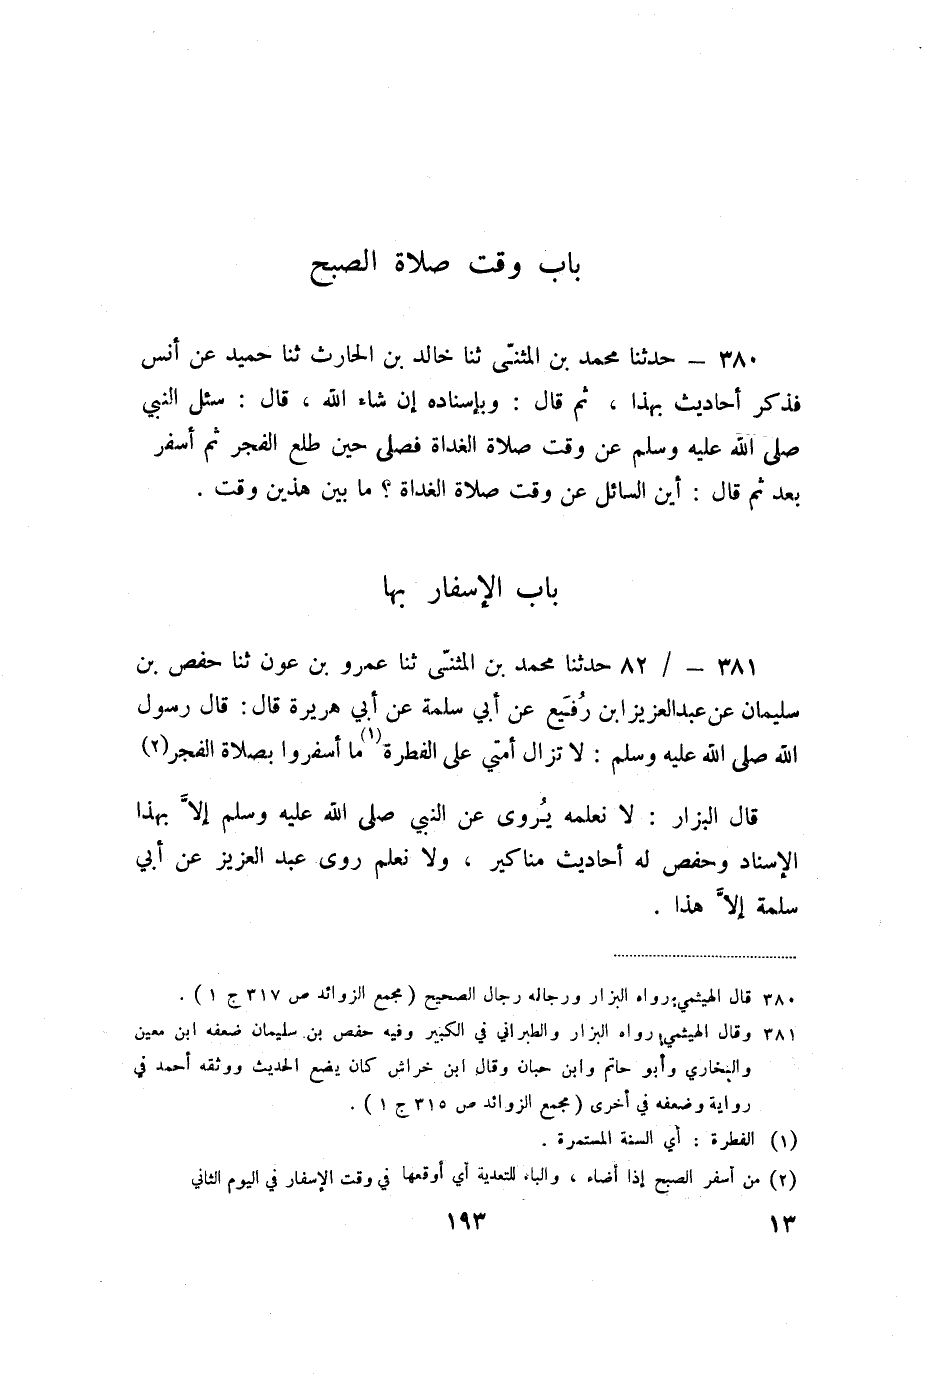 باب وقت صلاة الصبح
٣٨٠ – حدثنا محمد بن المثنّى ثنا خالد بن الحارث ثنا حميد عن أنس
فذكر أحاديث بهذا ، ثم قال : وبإسناده إن شاء الله ، قال : سئل النبي
صلى الله عليه وسلم عن وقت صلاة الغداة فصلى حين طلع الفجر ثم أسفر
بعد ثم قال : أين السائل عن وقت صلاة الغداة ؟ ما بين هذين وقت .
باب الإسفار بها
٣٨١ – / ٨٢ حدثنا محمد بن المثنّى ثنا عمرو بن عون ثنا حفص بن
سليمان عن عبدالعزيز ابن رُفَيع عن أبي سلمة عن أبي هريرة قال: قال رسول
الله صلى الله عليه وسلم : لا تزال أمتي على الفطرة(١) ما أسفروا بصلاة الفجر(٢)
قال البزار : لا نعلمه يُروى عن النبي صلى الله عليه وسلم إلاَّ بهذا
الإسناد وحفص له أحاديث مناكير ، ولا نعلم روى عبد العزيز عن أبي
سلمة إلاَّ هذا .
٣٨٠ قال الهيثمي: رواه البزار ورجاله رجال الصحيح ( مجمع الزوائد ص ٣١٧ ج ١ ) .
٣٨١ وقال الهيثمي: رواه البزار والطبراني في الكبير وفيه حفص بن سليمان ضعفه ابن معين
والبخاري وأبو حاتم وابن حبان وقال ابن خراش كان يضع الحديث ووثقه أحمد في
رواية وضعفه في أخرى ( مجمع الزوائد ص ٣١٥ ج ١ ) .
(١) الفطرة : أي السنة المستمرة .
(٢) من أسفر الصبح إذا أضاء ، والباء للتعدية أي أوقعها في وقت الإسفار في اليوم الثاني
١٣ ١٩٣